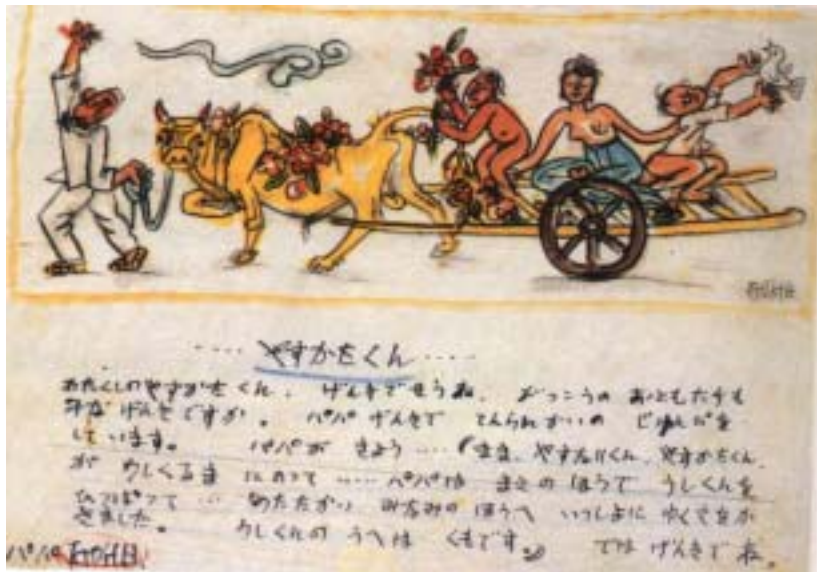 ㅈㅜㅇㅅㅓㅂ
‥‥ やすかたくん ‥‥
わたくしの やすかたくん、 げんきでせうね. がっこうの おともだちも
みな げんきですか。 パパ げんきで てんらんかいの じゅんびを
しています。 パパが きょう ‥‥ (まま、やすなりくん、やすかたくん、
が うしくるま にのって ‥‥ パパは まえのほうで うしくんを
ひっぱって ‥ あたたかい みなみのほうへ いっしょに ゆくえをか
きました。 うしくんの うへは くもです。) では げんきでね。
パパ ㅈㅜㅇㅅㅓㅂ